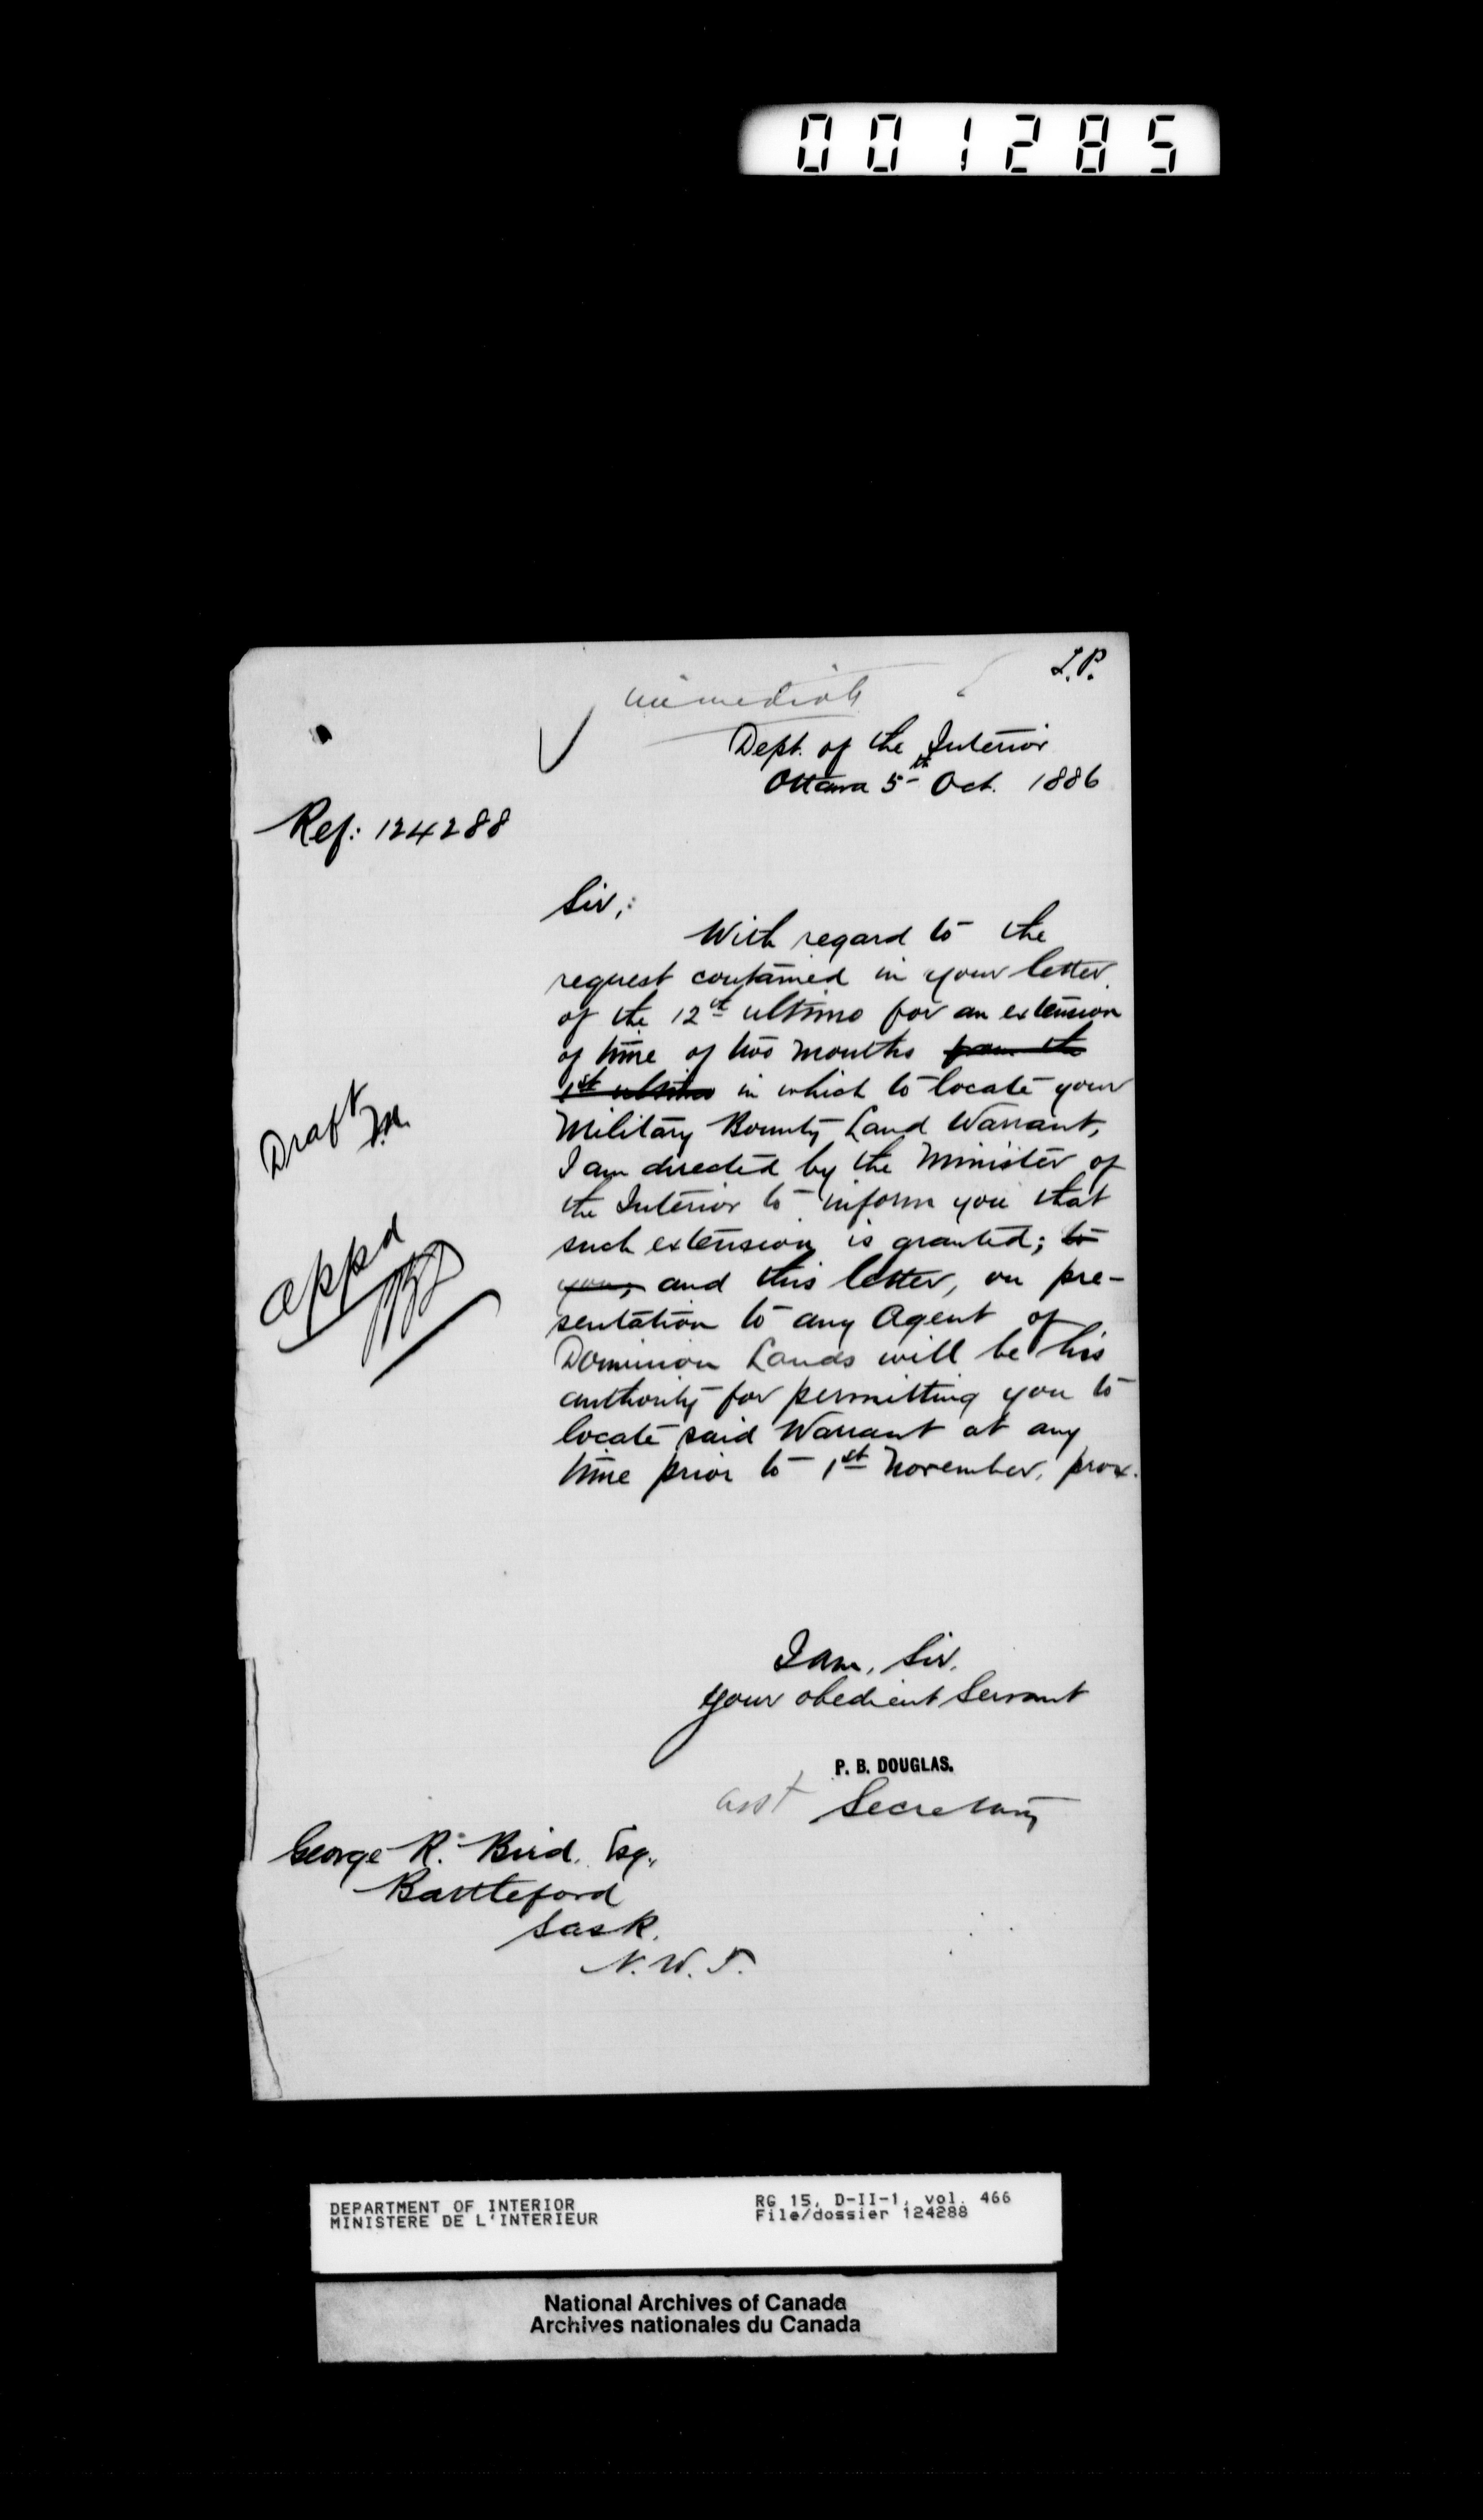 001285
L.P.
immediate
Dept. of the Interior
Ottawa 5th Oct. 1886
Ref: 124288
Sir,:
With regard to the
request contained in your letter
of the 12th ultimo for an extension
of time of two months from the
1st ultimo in which to locate your
Military Bounty Land Warrant,
I am directed by the Minister of
the Interior to inform you that
such extension is granted; to
you, and this letter, on pre-
sentation to any Agent of
Dominion Lands will be his
authority for permitting you to
locate said Warrant at any
time prior to 1st November, prox.
Draft
appd
I am, Sir,
Your obedient Servant
P. B. DOUGLAS.
asst Secretary
George R. Bird. Esq.,
Battleford
Sask.
N.W.T.
DEPARTMENT OF INTERIOR
MINISTERE DE L'INTERIEUR
RG 15, D-II-1, vol. 466
File/dossier 124288
National Archives of Canada
Archives nationales du Canada